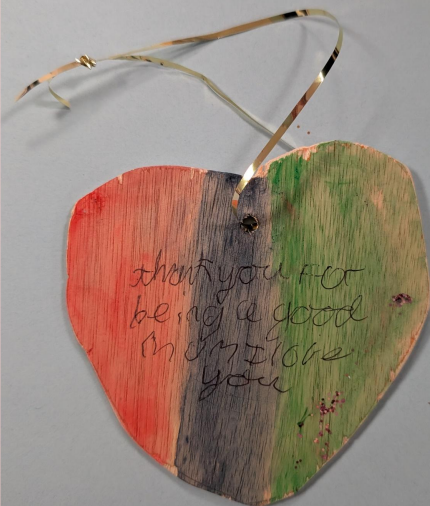 thank you For
being a good
mom I love
you